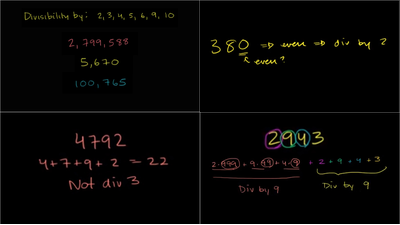 Divisibility by: 2, 3, 4, 5, 6, 9, 10
2,799,588
5,670
100,765
380 ⇒ even ⇒ div by 2
even?
4792
4+7+9+2 = 22
Not div 3
2943
2·999 + 9·99 + 4·9 + 2 + 9 + 4 + 3
Div by 9 Div by 9